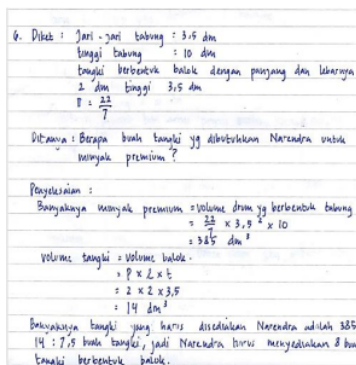 6. Diket : Jari-jari tabung : 3,5 dm
tinggi tabung : 10 dm
tangki berbentuk balok dengan panjang dan lebarnya
2 dm tinggi 3,5 dm
π = 22/7
Ditanya : Berapa buah tangki yg dibutuhkan Narendra untuk
minyak premium ?
Penyelesaian :
Banyaknya minyak premium = volume drum yg berbentuk tabung
= 22/7 x 3,5² x 10
= 385 dm³
volume tangki = volume balok.
= P x L x t
= 2 x 2 x 3,5
= 14 dm³
Banyaknya tangki yang harus disediakan Narendra adalah 385
14 : 7,5 buah tangki, jadi Narendra harus menyediakan 8 bu
tangki berbentuk balok.